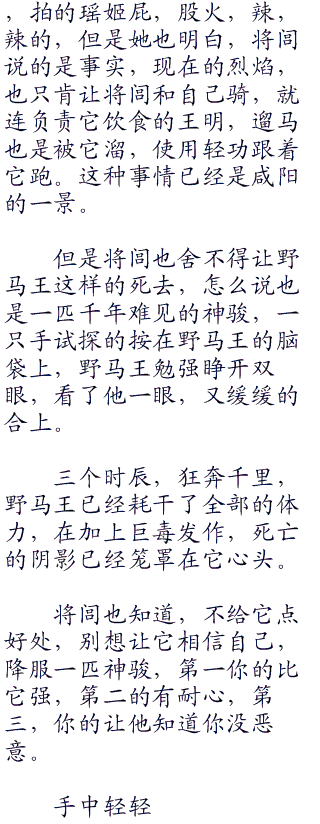 ，拍的瑶姬屁，股火，辣，
辣的，但是她也明白，将闾
说的是事实，现在的烈焰，
也只肯让将闾和自己骑，就
连负责它饮食的王明，遛马
也是被它溜，使用轻功跟着
它跑。这种事情已经是咸阳
的一景。
但是将闾也舍不得让野
马王这样的死去，怎么说也
是一匹千年难见的神骏，一
只手试探的按在野马王的脑
袋上，野马王勉强睁开双
眼，看了他一眼，又缓缓的
合上。
三个时辰，狂奔千里，
野马王已经耗干了全部的体
力，在加上巨毒发作，死亡
的阴影已经笼罩在它心头。
将闾也知道，不给它点
好处，别想让它相信自己，
降服一匹神骏，第一你的比
它强，第二的有耐心，第
三，你的让他知道你没恶
意。
手中轻轻